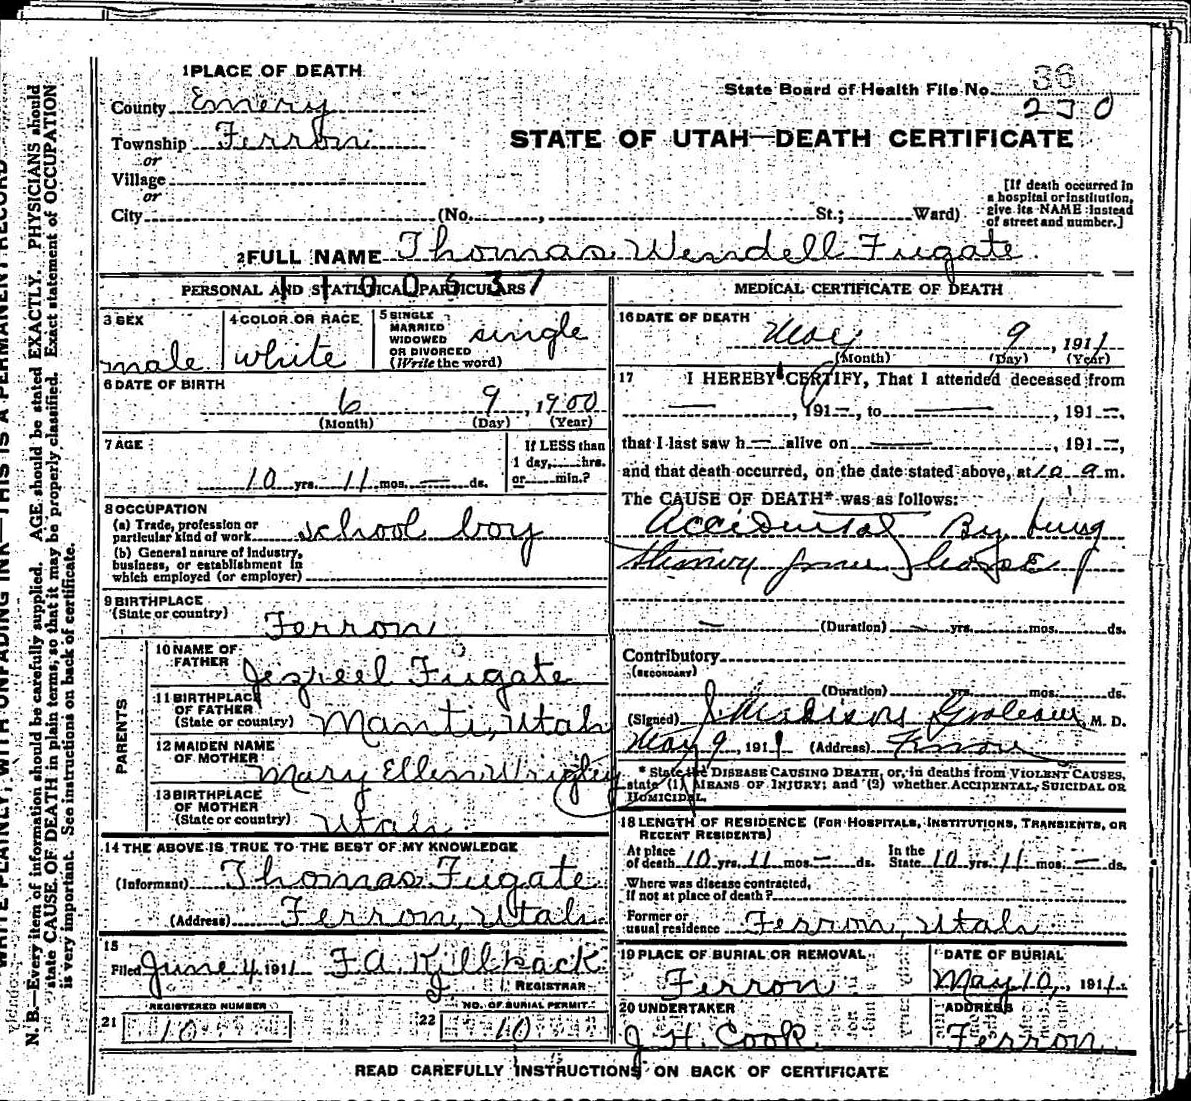 1 PLACE OF DEATH
County Emery
State Board of Health File No. 36
230
Township Ferron
or
STATE OF UTAH—DEATH CERTIFICATE
Village
or
City (No. , St.; Ward)
[If death occurred in
a hospital or institution,
give its NAME instead
of street and number.]
2 FULL NAME Thomas Wendell Fugate
PERSONAL AND STATISTICAL PARTICULARS
1100637
3 SEX
male
4 COLOR OR RACE
white
5 SINGLE
MARRIED
WIDOWED
OR DIVORCED
(Write the word)
single
6 DATE OF BIRTH
6 9, 1900
(Month) (Day) (Year)
7 AGE
10 yrs. 11 mos. — ds.
If LESS than
1 day, hrs.
or min.?
8 OCCUPATION
(a) Trade, profession or
particular kind of work school boy
(b) General nature of industry,
business, or establishment in
which employed (or employer)
9 BIRTHPLACE
(State or country)
Ferron
PARENTS
10 NAME OF
FATHER
Jezreel Fugate
11 BIRTHPLACE
OF FATHER
(State or country) Manti, Utah
12 MAIDEN NAME
OF MOTHER
Mary Ellen Wrigley
13 BIRTHPLACE
OF MOTHER
(State or country) Utah
14 THE ABOVE IS TRUE TO THE BEST OF MY KNOWLEDGE
(Informant) Thomas Fugate
(Address) Ferron, Utah
15
Filed June 4, 1911 F A Killpack
REGISTRAR
REGISTERED NUMBER
21 10
NO. OF BURIAL PERMIT
22 10
MEDICAL CERTIFICATE OF DEATH
16 DATE OF DEATH
May 9, 1911
(Month) (Day) (Year)
17 I HEREBY CERTIFY, That I attended deceased from
—, 191—, to —, 191—,
that I last saw h— alive on —, 191—,
and that death occurred, on the date stated above, at 10 a m.
The CAUSE OF DEATH* was as follows:
Accidental By being
from horse
— (Duration) — yrs. mos. ds.
Contributory
(SECONDARY)
(Duration) yrs. mos. ds.
(Signed) J, M. D.
May 9, 1911 (Address) Ferron
* State the DISEASE CAUSING DEATH, or, in deaths from VIOLENT CAUSES,
state (1) MEANS OF INJURY; and (2) whether ACCIDENTAL, SUICIDAL OR
HOMICIDAL.
18 LENGTH OF RESIDENCE (FOR HOSPITALS, INSTITUTIONS, TRANSIENTS, OR
RECENT RESIDENTS)
At place
of death 10 yrs. 11 mos. — ds. In the
State 10 yrs. 11 mos. — ds.
Where was disease contracted,
if not at place of death?
Former or
usual residence Ferron, Utah
19 PLACE OF BURIAL OR REMOVAL
Ferron
DATE OF BURIAL
May 10, 1911
20 UNDERTAKER
J. H. Cook
ADDRESS
Ferron
READ CAREFULLY INSTRUCTIONS ON BACK OF CERTIFICATE
WRITE PLAINLY, WITH UNFADING INK—THIS IS A PERMANENT RECORD
N. B.—Every item of information should be carefully supplied. AGE should be stated EXACTLY. PHYSICIANS should
state CAUSE OF DEATH in plain terms, so that it may be properly classified. Exact statement of OCCUPATION
is very important. See instructions on back of certificate.